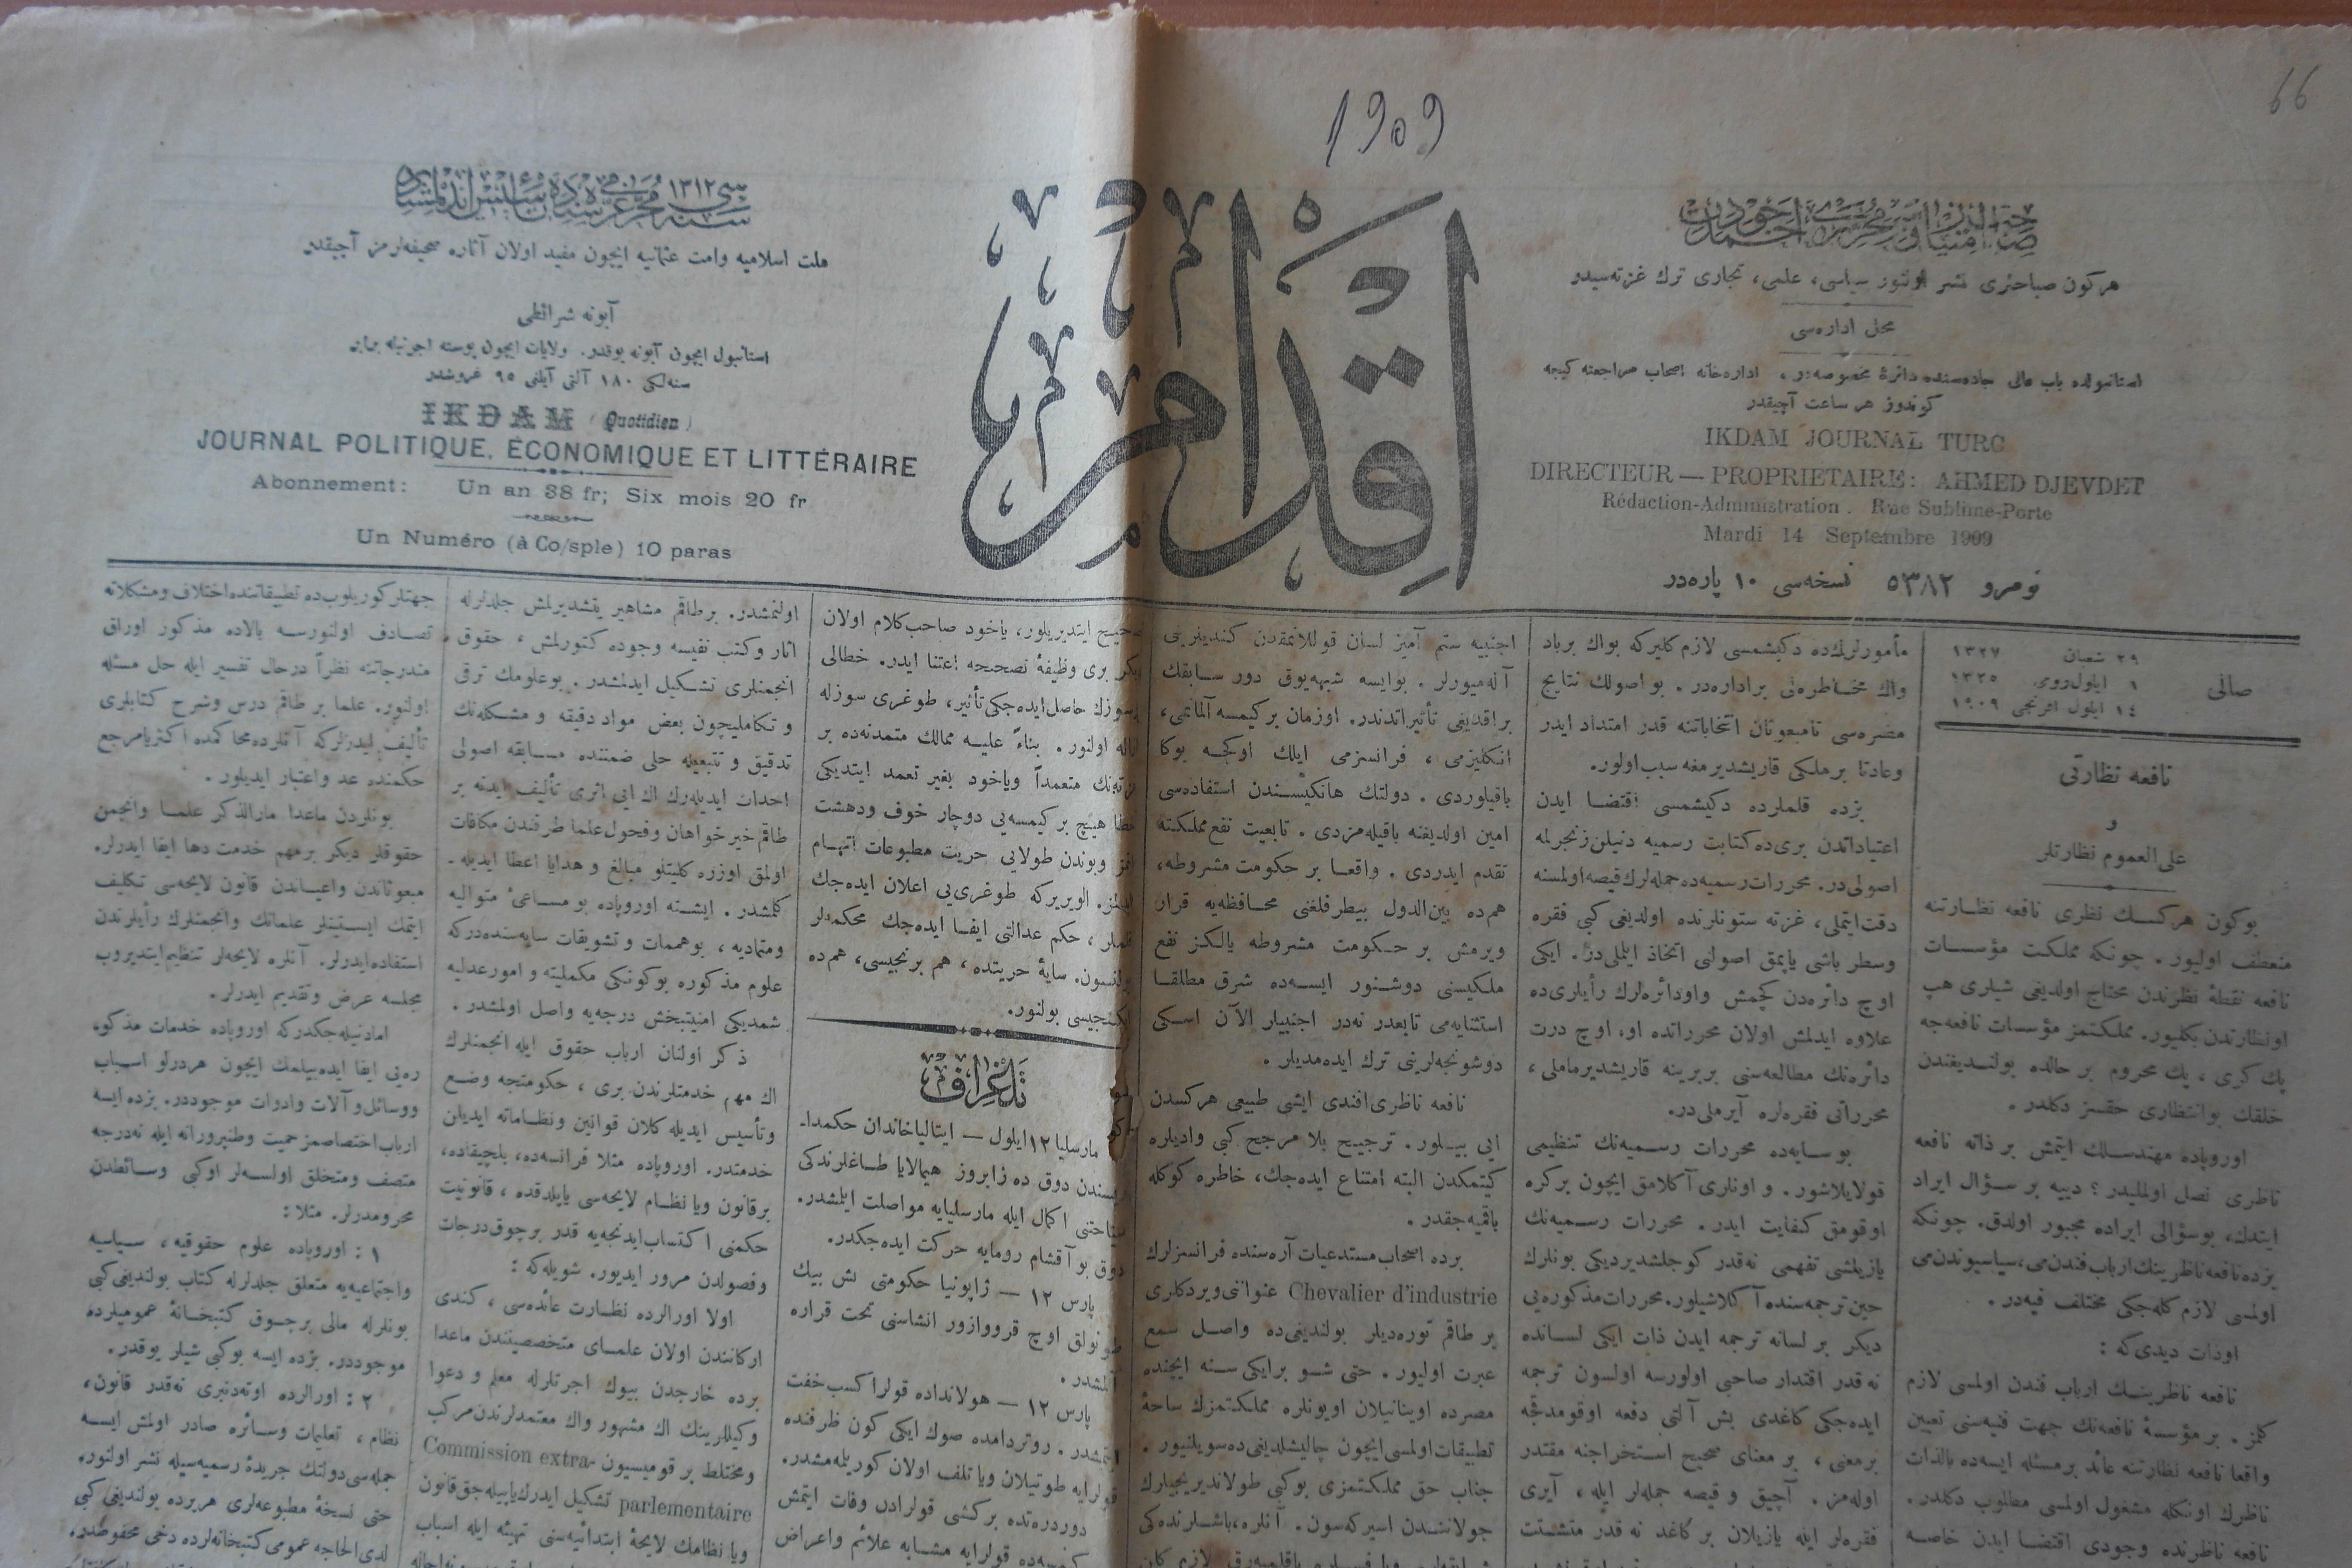 1909
66
اقدام
صاحب امتیاز و سر محرری احمد جودت
هركون صباحلری نشر اولنور سیاسی، علمی، تجاری ترك غزته‌سیدر
محل اداره‌سی
استانبولده باب عالی جاده‌سنده دائرهٔ مخصوصه‌در . اداره‌خانه اصحاب مراجعته كیجه
كوندوز هر ساعت آچیقدر
IKDAM JOURNAL TURC
DIRECTEUR — PROPRIETAIRE: AHMED DJEVDET
Rédaction-Administration. Rue Sublime-Porte
Mardi 14 Septembre 1909
نومرو ٥٣٨٢ نسخه‌سی ١٠ پاره‌در
سنه ١٣١٢
ملت اسلامیه وامت عثمانیه ایچون مفید اولان آثاره صحیفه‌لرمز آچیقدر
آبونه شرائطی
استانبول ایچون آبونه یوقدر. ولایات ایچون پوسته اجرتیله برابر
سنه‌لكی ١٨٠ آلتی آیلنی ٩٥ غروشدر
IKDAM (Quotidien)
JOURNAL POLITIQUE, ÉCONOMIQUE ET LITTÉRAIRE
Abonnement: Un an 38 fr; Six mois 20 fr
Un Numéro (à Co/sple) 10 paras
صالی
٢٩ شعبان ١٣٢٧
١ ایلول رومی ١٣٢٥
١٤ ایلول افرنجی ١٩٠٩
نافعه نظارتی
و
علی‌العموم نظارتلر
بوكون هركسك نظری نافعه نظارتنه
منعطف اولیور . چونكه مملكت مؤسسات
نافعه نقطهٔ نظرندن محتاج اولدیغی شیلری هپ
اونظارتدن بكلیور. مملكتمز مؤسسات نافعه‌جه
پك كری ، پك محروم بر حالده بولندیغندن
خلقك بوانتظاری حقسز دكلدر .
اوروپاده مهندسلك ایتمش بر ذاته نافعه
ناظری نصل اولملیدر؟ دییه بر سؤال ایراد
ایتدك، بوسؤالی ایراده مجبور اولدق. چونكه
بزده نافعه ناظرینك ارباب فندن‌می، سیاسیوندن‌می
اولمسی لازم كله‌جكی مختلف فیه‌در .
اوذات دیدی‌كه :
نافعه ناظرینك ارباب فندن اولمسی لازم
كلمز . بر مؤسسهٔ نافعه‌نك جهت فنیه‌سنی تعیین
واقعا نافعه نظارتنه عائد برمسئله ایسه‌ده بالذات
ناظرك اونكله مشغول اولمسی مطلوب دكلدر.
نافعه ناظرنده وجودی اقتضا ایدن خاصه
مأمورلرك‌ده دكیشمسی لازم كلیركه بواك برباد
واك مخاطره‌لی براداره‌در . بو اصولك نتایج
مضره‌سی تامبعوثان انتخاباتنه قدر امتداد ایدر
وعادتا برملكی قاریشدیرمغه سبب اولور.
بزده قلملرده دكیشمسی اقتضا ایدن
اعتیاداتدن بری‌ده كتابت رسمیه دنیلن زنجیرلمه
اصولی‌در. محررات رسمیه‌ده جمله‌لرك قیصه اولمسنه
دقت ایتملی، غزته ستونلرنده اولدیغی كبی فقره
وسطر باشی یاپمق اصولنی اتخاذ ایلملی‌در. ایكی
اوچ دائره‌دن كچمش واودائره‌لرك رأیلری‌ده
علاوه ایدلمش اولان محرراتده او، اوچ درت
دائره‌نك مطالعه‌سنی بربرینه قاریشدیرماملی ،
محرراتی فقره‌لره آیرملی‌در.
بوسایه‌ده محررات رسمیه‌نك تنظیمی
قولایلاشور . و اونلری آكلامق ایچون بركره
اوقومق كفایت ایدر . محررات رسمیه‌نك
یازیلمشی تفهمی نه‌قدر كوجلشدیردیكی بونلرك
حین ترجمه‌سنده آكلاشیلور. محررات مذكوره‌یی
دیكر برلسانه ترجمه ایدن ذات ایكی لسانده
نه‌قدر اقتدار صاحبی اولورسه اولسون ترجمه
ایده‌جكی كاغدی بش آلتی دفعه اوقومدقجه
برمعنی ، بر معنای صحیح استخراجنه مقتدر
اوله‌مز . آچیق و قیصه جمله‌لر ایله ، آیری
فقره‌لر ایله یازیلان بر كاغد نه قدر متشتت
اجنبیه ستم آمیز لسان قوللانمقدن كندیلرینی
آله‌میورلر . بوایسه شبهه‌یوق دور سابقك
براقدیغی تأثیراتدندر. اوزمان بركیمسه آلمانمی،
انكلیزمی ، فرانسزمی ایلك اوكجه بوكا
باقیلوردی . دولتك هانكیسندن استفاده‌سی
امین اولدیغنه باقیله‌مزدی . تابعیت نفع مملكته
تقدم ایدردی . واقعا بر حكومت مشروطه،
هم‌ده بین‌الدول بیطرفلغنی محافظه‌یه قرار
ویرمش بر حكومت مشروطه یالكز نفع
ملكیسنی دوشنور ایسه‌ده شرق مطلقا
استثنایه‌می تابعدر نه‌در اجنبیلر الآن اسكی
دوشونجه‌لرینی ترك ایده‌مدیلر .
نافعه ناظری افندی ایشی طبیعی هركسدن
ایی بیلور . ترجیح بلا مرجح كبی وادیلره
كیتمكدن البته امتناع ایده‌جك، خاطره كوكله
باقمیه‌جقدر .
برده اصحاب مستدعیات آره‌سنده فرانسزلرك
Chevalier d'industrie عنوانی ویردكلری
بر طاقم توره‌دیلر بولندیغی‌ده واصل سمع
عبرت اولیور . حتی شو برایكی سنه ایچنده
مصرده اوینانیلان اویونلره مملكتمزك ساحهٔ
تطبیقات اولمسی ایچون چالیشلدیغی‌ده سویلنیور .
جناب حق مملكتمزی بوكبی طولاندیریجیلرك
جولانندن اسیركه‌سون . آنلره، باشلرنده‌كی
تصحیح ایتدیریلور، یاخود صاحب كلام اولان
دیكر بری وظیفهٔ تصحیحه اعتنا ایدر. خطالی
سوزك حاصل ایده‌جكی تأثیر، طوغری سوزله
ازاله اولنور . بناءً علیه ممالك متمدنه‌ده بر
غزته‌نك متعمداً ویاخود بغیر تعمد ایتدیكی
خطا هیچ بر كیمسه‌یی دوچار خوف ودهشت
ایتمز وبوندن طولایی حریت مطبوعات اتهام
ایدلمز. الویریركه طوغری‌یی اعلان ایده‌جك
قلملر ، حكم عدالتی ایفا ایده‌جك محكمه‌لر
بولنسون. سایهٔ حریتده ، هم برنجیسی، هم‌ده
ایكنجیسی بولنور.
تلغراف
مارسلیا ١٢ ایلول — ایتالیا خاندان حكمدا-
ریسندن دوق ده زابروز هیمالایا طاغلرندكی
سیاحتنی اكمال ایله مارسلیایه مواصلت ایلمشدر.
دوق بو آقشام رومایه حركت ایده‌جكدر.
پارس ١٢ — ژاپونیا حكومتی بش بیك
طونولق اوچ قرووازور انشاسنی تحت قراره
آلمشدر .
پارس ١٢ — هولانداده قولرا كسب خفت
ایتمشدر . روتردامده صوك ایكی كون ظرفنده
قولرایه طوتیلان ویا تلف اولان كوریله‌مشدر.
دوردره‌تده بركشی قولرادن وفات ایتمش
كیمسه‌ده قولرایه مشابه علائم واعراض
اولنمشدر. برطاقم مشاهیر یتشدیرلمش جلدلرله
اثار وكتب نفیسه وجوده كتورلمش ، حقوق
انجمنلری تشكیل ایدلمشدر . بوعلومك ترقی
و تكاملیچون بعض مواد دقیقه و مشكله‌نك
تدقیق و تتبعیله حلی ضمننده مسابقه اصولی
احداث ایدیله‌رك اك ایی اثری تألیف ایدنه بر
طاقم خیرخواهان وفحول علما طرفندن مكافات
اولمق اوزره كلیتلو مبالغ و هدایا اعطا ایدیله-
كلمشدر. ایشته اوروپاده بو مساعیٔ متوالیه
ومتمادیه ، بوهممات و تشویقات سایه‌سنده‌دركه
علوم مذكوره بوكونكی مكملیته و امور عدلیه
شمدیكی امنیتبخش درجه‌یه واصل اولمشدر .
ذكر اولنان ارباب حقوق ایله انجمنلرك
اك مهم خدمتلرندن بری ، حكومتجه وضع
وتأسیس ایدیله كلان قوانین ونظاماته ایدیلن
خدمتدر. اوروپاده مثلا فرانسه‌ده، بلچیقاده،
برقانون ویا نظام لایحه‌سی یاپیلدقده ، قانونیت
حكمنی اكتساب ایدنجه‌یه قدر برچوق درجات
وفصولدن مرور ایدیور. شویله‌كه :
اولا اورالرده نظارت عائده‌سی ، كندی
اركانندن اولان علمای متخصصیندن ماعدا
برده خارجدن بیوك اجرتلرله معلم و دعوا
وكیللرینك اك مشهور واك معتمدلرندن مركب
ومختلط بر قومیسیون Commission extra-
parlementaire تشكیل ایدرك یاپیله‌جق قانون
ویا نظامك لایحهٔ ابتدائیه‌سنی تهیئه ایله اسباب
جهتلر كوریلوب‌ده تطبیقاتنده اختلاف ومشكلاته
تصادف اولنورسه بالاده مذكور اوراق
مندرجاتنه نظراً درحال تفسیر ایله حل مسئله
اولنور. علما بر طاقم درس وشرح كتابلری
تألیف ایدرلركه آنلرده محاكمده اكثریا مرجع
حكمنده عد واعتبار ایدیلور .
بونلردن ماعدا مارالذكر علما وانجمن
حقوقلر دیكر برمهم خدمت دها ایفا ایدرلر.
مبعوثاندن واعیاندن قانون لایحه‌سی تكلیف
ایتمك ایستینلر علمانك وانجمنلرك رأیلرندن
استفاده ایدرلر. آنلره لایحه‌لر تنظیم ایتدیروب
مجلسه عرض وتقدیم ایدرلر.
امادنیله‌جكدركه اوروپاده خدمات مذكو-
ره‌یی ایفا ایده‌بیلمك ایچون هردرلو اسباب
ووسائل و آلات وادوات موجوددر. بزده ایسه
ارباب اختصاصمز حمیت وطنپرورانه ایله نه‌درجه
متصف ومتخلق اولسه‌لر اوكبی وسائطدن
محرومدرلر. مثلا :
١ : اوروپاده علوم حقوقیه ، سیاسیه
واجتماعیه‌یه متعلق جلدلرله كتاب بولندیغی كبی
بونلرله مالی برچوق كتبخانهٔ عمومیلرده
موجوددر. بزده ایسه بوكبی شیلر یوقدر.
٢ : اورالرده اوته‌دنبری نه‌قدر قانون،
نظام ، تعلیمات وسائره صادر اولمش ایسه
جمله‌سی دولتك جریدهٔ رسمیه‌سیله نشر اولنور.
حتی نسخهٔ مطبوعه‌لری هریرده بولندیغی كبی
لدی‌الحاجه عمومی كتبخانه‌لرده دخی محفوظدر.